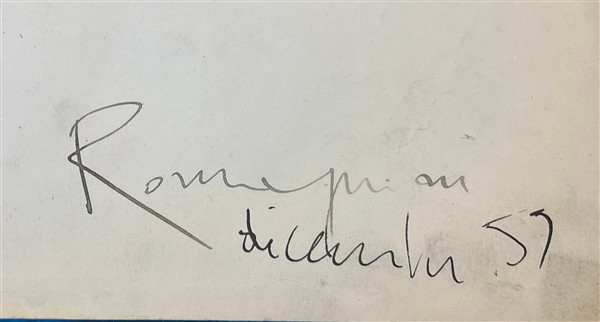 Romagnoni
dicembre 57